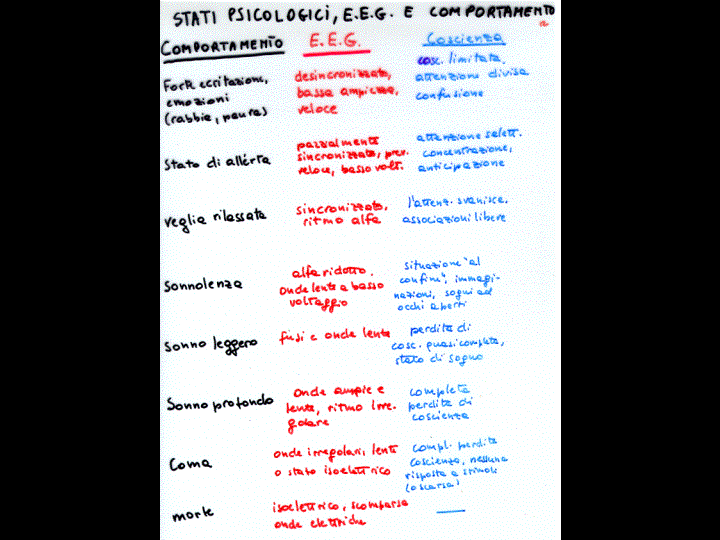 STATI PSICOLOGICI, E.E.G. E COMPORTAMENTO
COMPORTAMENTO E.E.G. Coscienza
Forte eccitazione,
emozioni
(rabbia, paura)
desincronizzato,
bassa ampiezza,
veloce
cosc. limitata.
attenzione divisa
confusione
Stato di allerta
parzialmente
sincronizzato, prev.
veloce, basso volt.
attenzione selett.
concentrazione,
anticipazione
veglia rilassata
sincronizzato.
ritmo alfa
l'attenz. svanisce.
associazioni libere
Sonnolenza
alfa ridotto.
Onde lente a basso
voltaggio
situazione "al
confine", immagi-
nazioni, sogni ad
occhi aperti
sonno leggero
fusi e onde lente
perdita di
cosc. quasi completa,
stato di sogno
Sonno profondo
Onde ampie e
lente, ritmo irre-
golare
completa
perdita di
coscienza
Coma
onde irregolari, lenti
o stato isoelettrico
compl. perdita
coscienza, nessuna
risposta a stimoli
(o scarsa)
morte
isoelettrico, scomparsa
onde elettriche